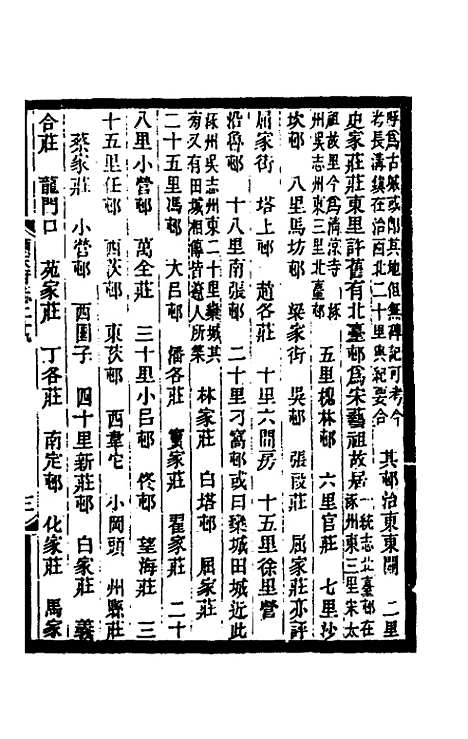 呼爲古城或卽其地但無碑記可考今
考長溝鎭在治西北二十里與紀要合 其邨治東東關 二里
史家莊莊東里許舊有北臺邨爲宋藝祖故居 一統志北臺邨在涿州東三里宋太
祖故里今爲淸涼寺 涿州吳志州東三里北臺邨 五里槐林邨 六里官莊 七里沙
坎邨 八里馬坊邨 梁家街 吳邨 張段莊 屈家莊亦評
屈家街 塔上邨 趙各莊 十里六間房 十五里徐里營
沿魯邨 十八里南張邨 二十里刁窩邨或曰樂城田城近此
涿州吳志州東二十里樂城其旁又有田城相傳皆遼人所築 林家莊 白塔邨 屈家莊
二十五里馮邨 大呂邨 潘各莊 竇家莊 翟家莊 二十
八里小營邨 萬全莊 三十里小呂邨 佟邨 望海莊 三
十五里任邨 西茨邨 東茨邨 西韋坨 小岡頭 州縣莊
蔡家莊 小營邨 西圍子 四十里新莊邨 白家莊 義
合莊 龍門口 苑家莊 丁各莊 南定邨 化家莊 馬家